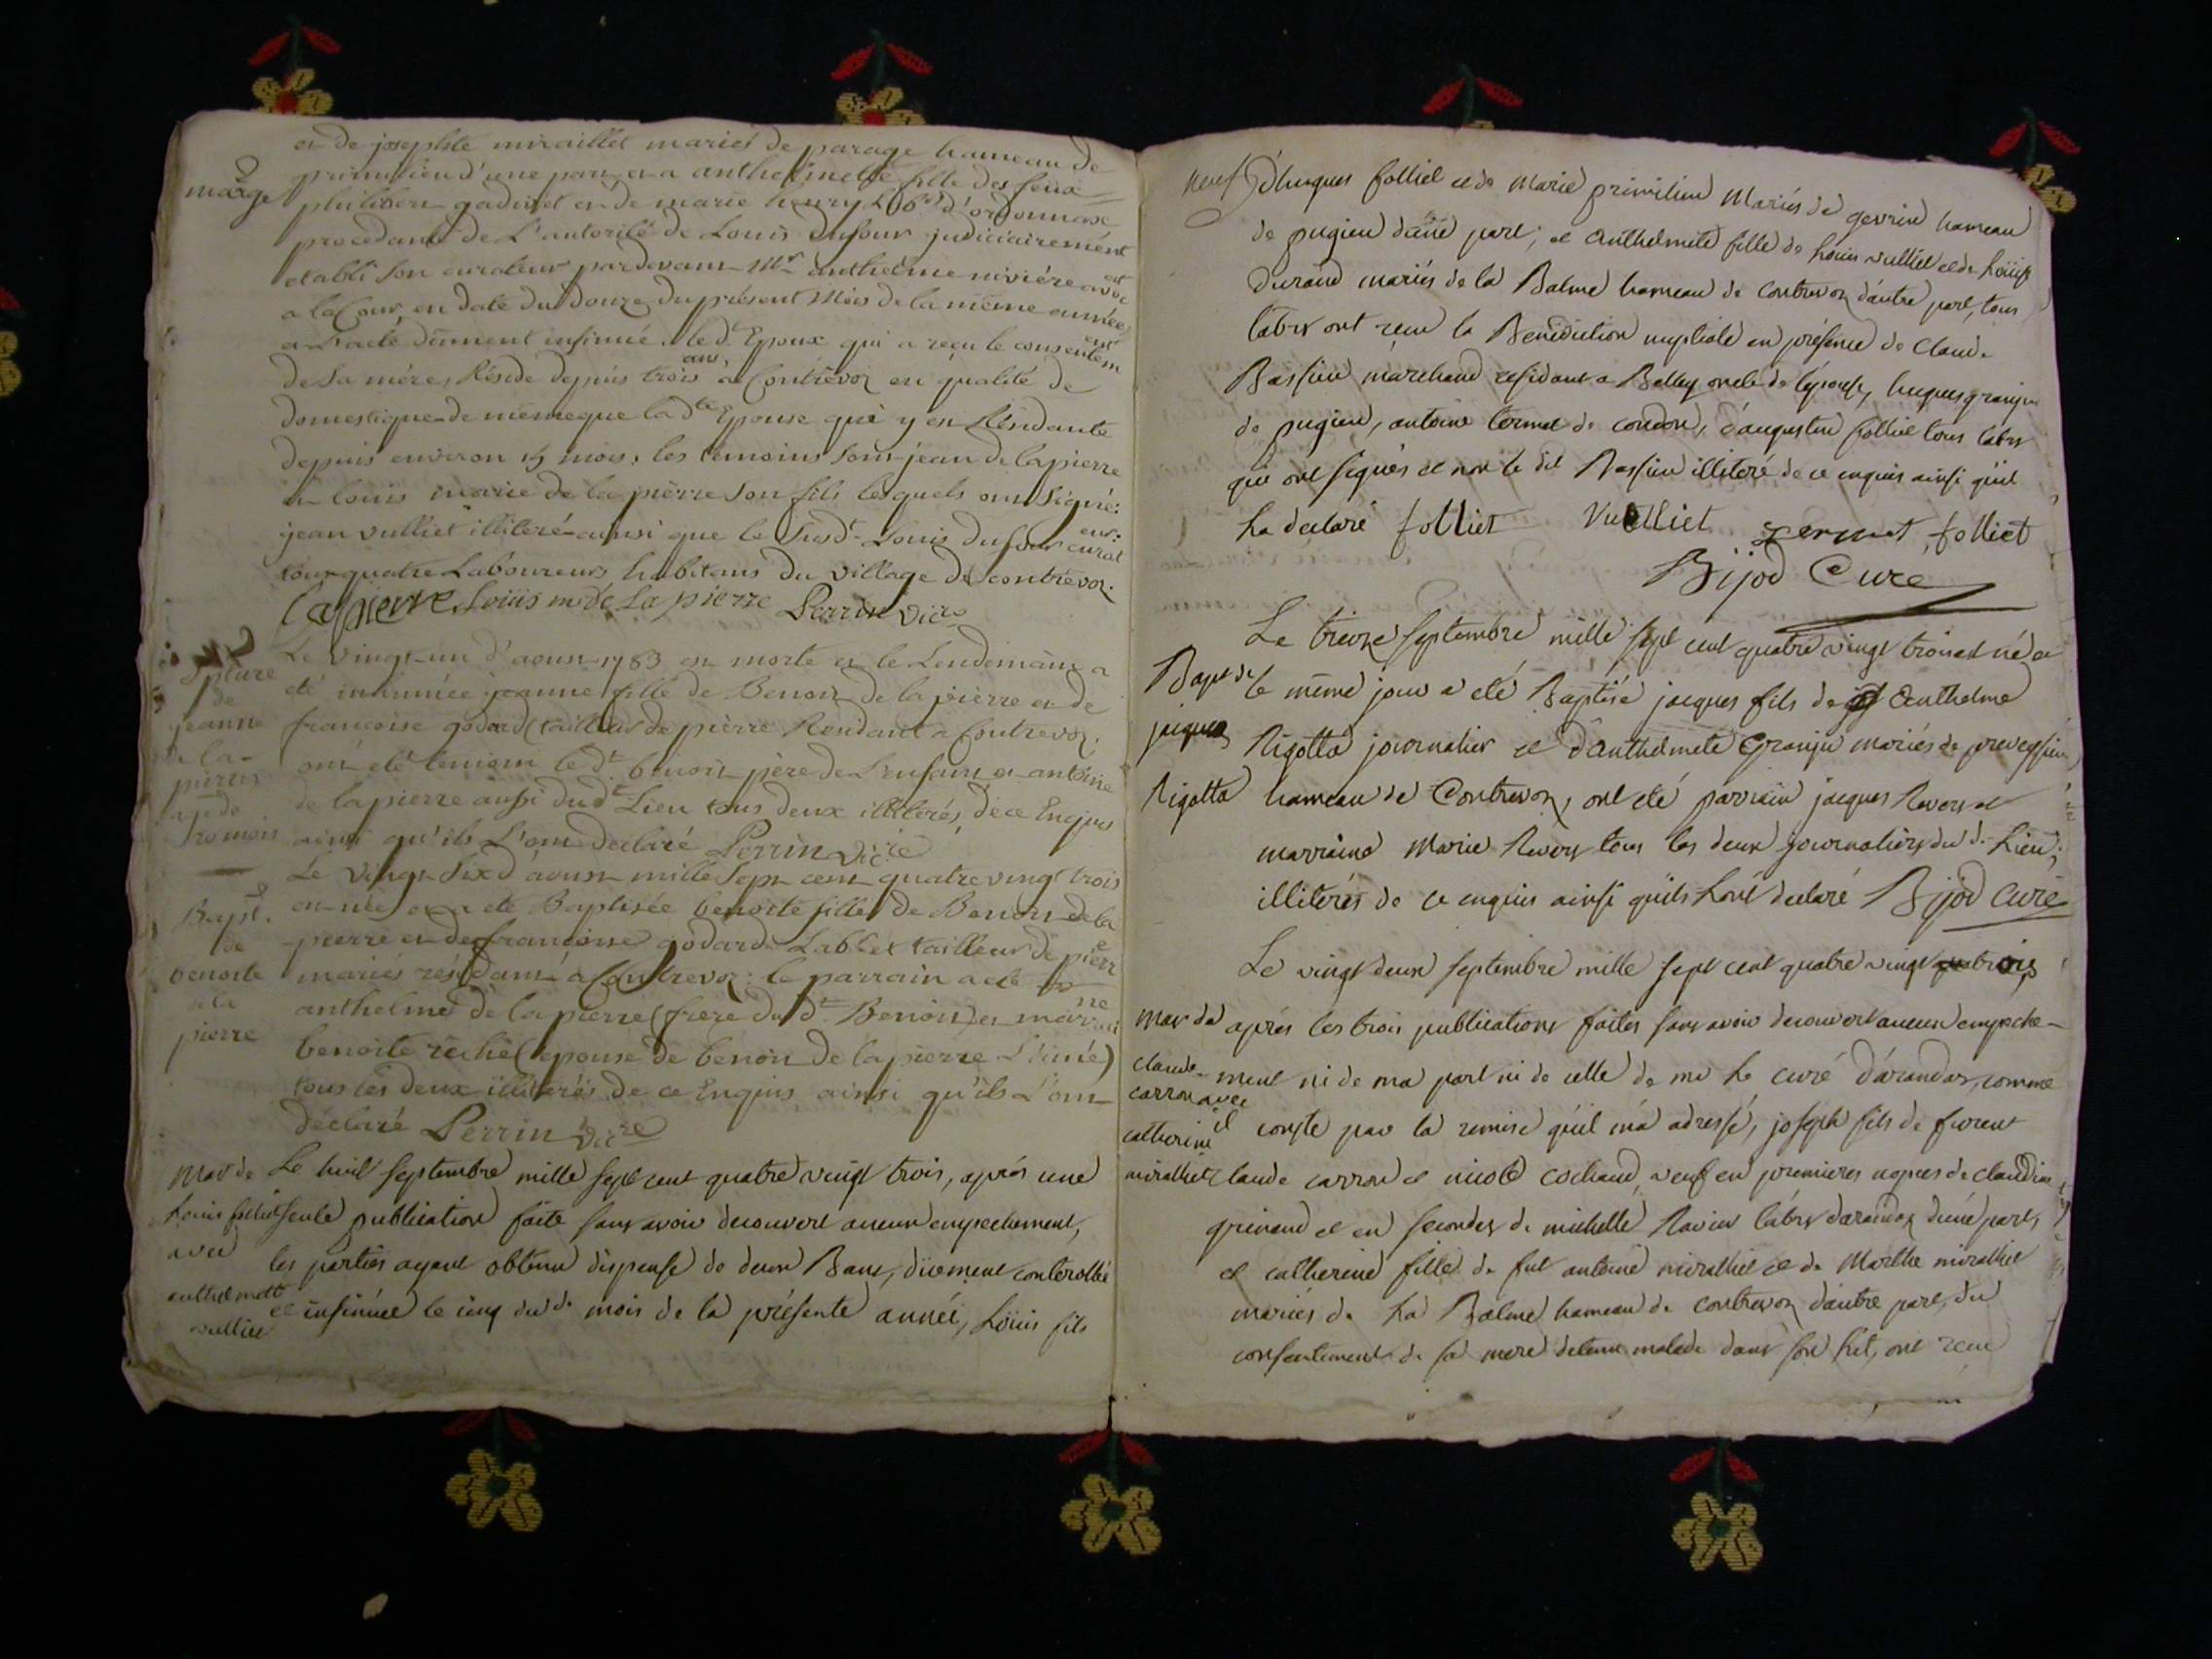 et de josephte miraillet mariés de parage hameau de
marge
primilieu d'une part et a anthelmette fille des feux
philibert gadinet et de marie henry Lbrs d'ordonnax
procedante de L'autorité de Louis dufour judiciairement
etabli son curateur pardevant Mr anthelme nivière avocat
a la Cour, en date du douze du présent Mois de la même année
a L'acte dument insinué. led Epoux qui a reçu le consentement
de sa mère, Réside depuis trois ans, a Contrevoz en qualité de
domestique de même que la dte Epouse qui y est Résidante
depuis environ 15 mois, les temoins sont jean de lapierre
et louis marie de la pierre son fils lesquels ont signé:
jean vulliet illiteré ainsi que le susdt Louis dufour curateur:
tous quatre Laboureurs habitans du village de contrevoz.
Lapierre Louiis m de La pierre Perrin Vicre
Spture
de
jeanne
de la
pierre
agée de
mois
Le vingt-un d'aoust 1783 est morte et le Lendemain a
eté inhumée jeanne fille de Benoit de la pierre et de
francoise godard (tailleur de pierre Residant a Contrevoz.
ont eté temoin le dt benoit père de L'enfant, et antoine
de lapierre aussi dudt Lieu tous deux illiterés, de ce Enquis
ainsi qu'ils L'ont declaré Perrin Vicre
Bapt.
de
benoite
de la
pierre
Le vingt Six d'aoust mille Sept cent quatre vingt trois
est née et a eté Baptisée benoite fille de Benoit de la
pierre et de francoise godard Lab et tailleur de pierre
mariés résidant à Contrevoz: le parrain a eté
anthelme de la pierre (frere du dt Benoit) et marraine
benoite (epouse de benoit de la pierre L'ainé)
tous les deux illiterés de ce Enquis ainsi qu'ils L'ont
déclaré Perrin Vicre
Mar de
Louis folliet
avec
anthelmette
vulliet
Le huit septembre mille sept cent quatre vingt trois, après une
seule publication faite sans avoir decouvert aucun empechement,
les parties ayant obtenu dispense de deux Bans, düement conterollée
et insinuée le cinq dud. mois de la présente année, Loüis fils
neuf d'hugues folliet et de Marie primilieu Mariés de gevrin hameau
de pugieu d'une part; et Anthelmete fille de Louis vulliet et de Loüise
Durand mariés de la Balme hameau de contrevoz d'autre part, tous
labrs ont reçu la Benediction nuptiale en présence de Claude
Bassieu marchand residant a Belley oncle de l'épouse, hugues granju
de pugieu, antoine termet de condon, d'augustin folliet tous labrs
qui ont signés et non le dit Bassieu illiteré de ce enquis ainsi qu'il
La declaré folliet Vuilliet termet folliet
Bijod Cure
Bapt de
jacques
Rigotta
Le treize septembre mille sept cent quatre vingt trois est né et
le même jour a eté Baptisé jacques fils de Anthelme
Rigotta journalier et d'Anthelmete Granju mariés de preveyssieu
hameau de Contrevoz, ont eté parrain jacques Ravoz et
marraine Marie Ravoz tous les deux journaliers du d. Lieu;
illiterés de ce enquis ainsi quils Lont declaré Bijod Curé
Mar de
claude
carron avec
catherine
miralliet
Le vingt deux septembre mille sept cent quatre vingt trois
après les trois publications faites sans avoir decouvert aucun empeche-
ment ni de ma part ni de celle de mr Le curé d'arandas, comme
il conste par la remise qu'il m'a adressé, joseph fils de furent
claude carron et nicole cochaud, veuf en premieres nopces de claudine
grinand et en secondes de michelle Ravier labrs d'arandas d'une part,
et catherine fille de fut antoine miralliet et de Marthe miralliet
mariés de La Balme hameau de contrevoz d'autre part, du
consentement de sa mere detenue malade dans son Lit, ont recu